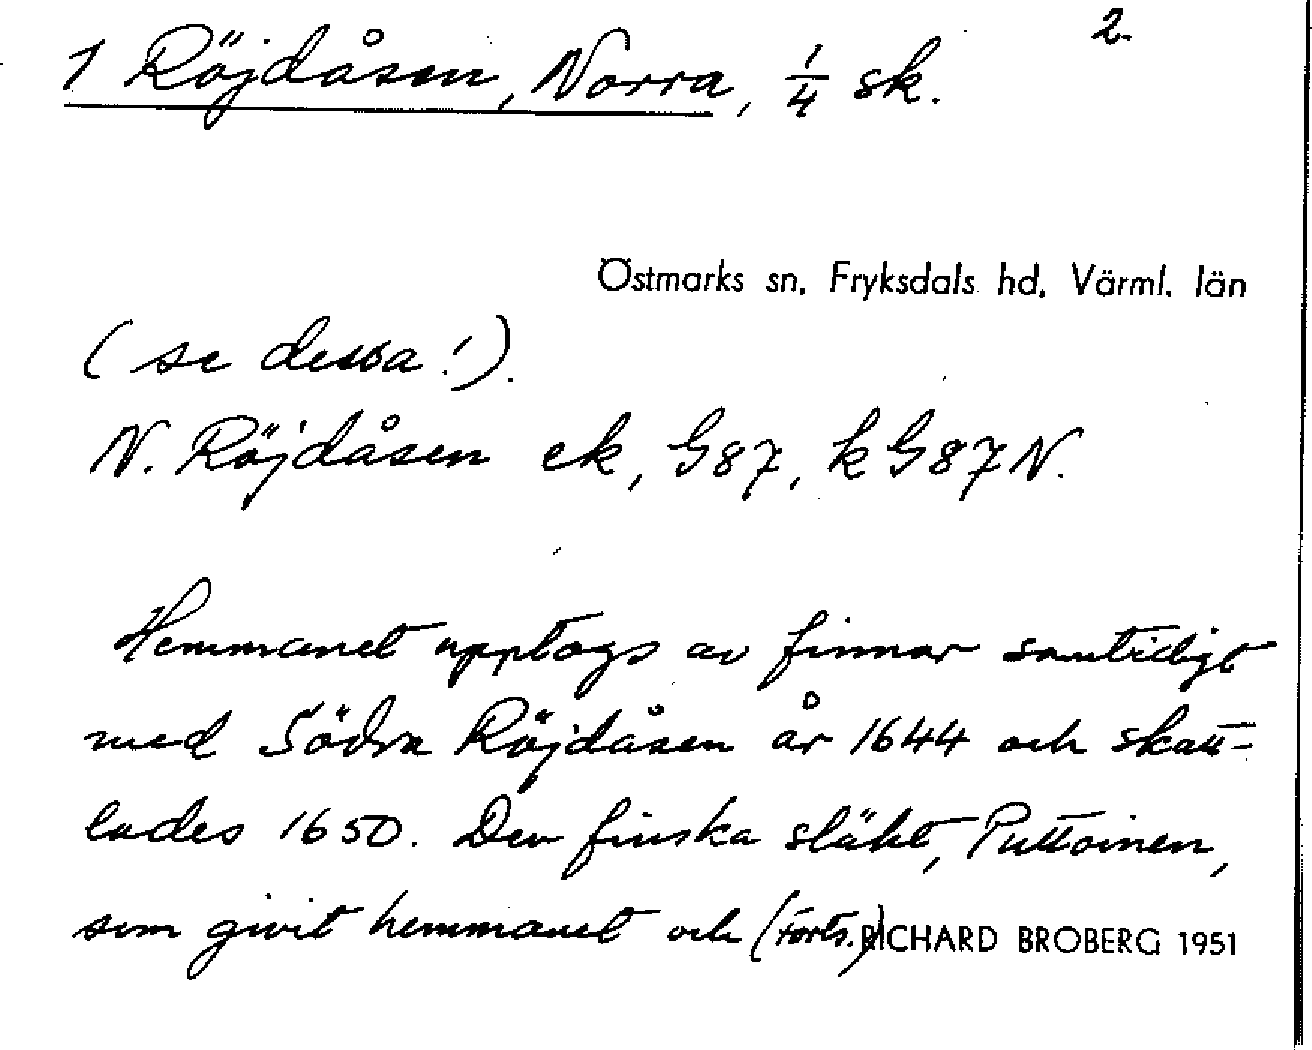 2.
1 Röjdåsen, Norra, 1/4 sk.
Östmarks sn, Fryksdals hd, Värml. län
(se dessa!).
N. Röjdåsen ek, G87, k G87 N.
Hemmanet upptogs av finnar samtidigt
med Södra Röjdåsen år 1644 och skatt-
lades 1650. Den finska släkt, Puttoinen,
som givit hemmanet och (forts.)
RICHARD BROBERG 1951